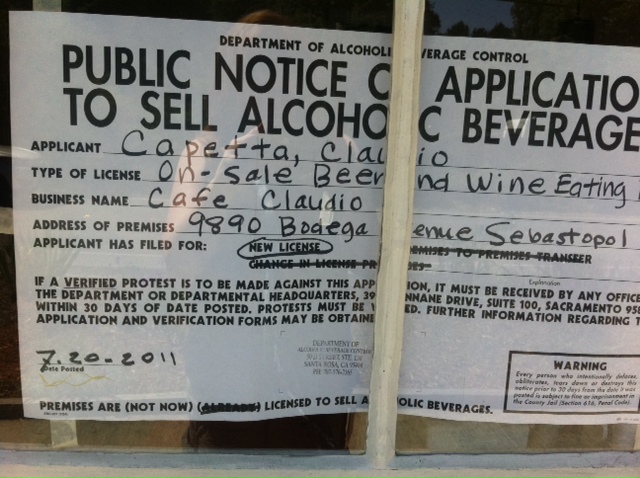 DEPARTMENT OF ALCOHOLI VERAGE CONTROL
PUBLIC NOTICE O APPLICATIO
TO SELL ALCOHO C BEVERAGE
APPLICANT Capetta, Clau io
TYPE OF LICENSE On-Sale Beer nd Wine Eating
BUSINESS NAME Cafe Claudio
ADDRESS OF PREMISES 9890 Bodega enue Sebastopol
APPLICANT HAS FILED FOR: NEW LICENSE EMISES TO PREMISES TRANSFER
CHANGE IN LICENSE PR ES
Explanation
IF A VERIFIED PROTEST IS TO BE MADE AGAINST THIS APP ION, IT MUST BE RECEIVED BY ANY OFFICE
THE DEPARTMENT OR DEPARTMENTAL HEADQUARTERS, 39 NNANE DRIVE, SUITE 100, SACRAMENTO 958
WITHIN 30 DAYS OF DATE POSTED. PROTESTS MUST BE V ED. FURTHER INFORMATION REGARDING T
APPLICATION AND VERIFICATION FORMS MAY BE OBTAINE
7-20-2011
Date Posted
DEPARTMENT OF
ALCOHOLIC BEVERAGE CONTROL
SANTA ROSA, CA
WARNING
Every person who intentionally defaces,
obliterates, tears down or destroys this
notice prior to 30 days from the date it was
posted is subject to fine or imprisonment in
the County Jail (Section 616, Penal Code).
PREMISES ARE (NOT NOW) (ALREADY) LICENSED TO SELL A OLIC BEVERAGES.